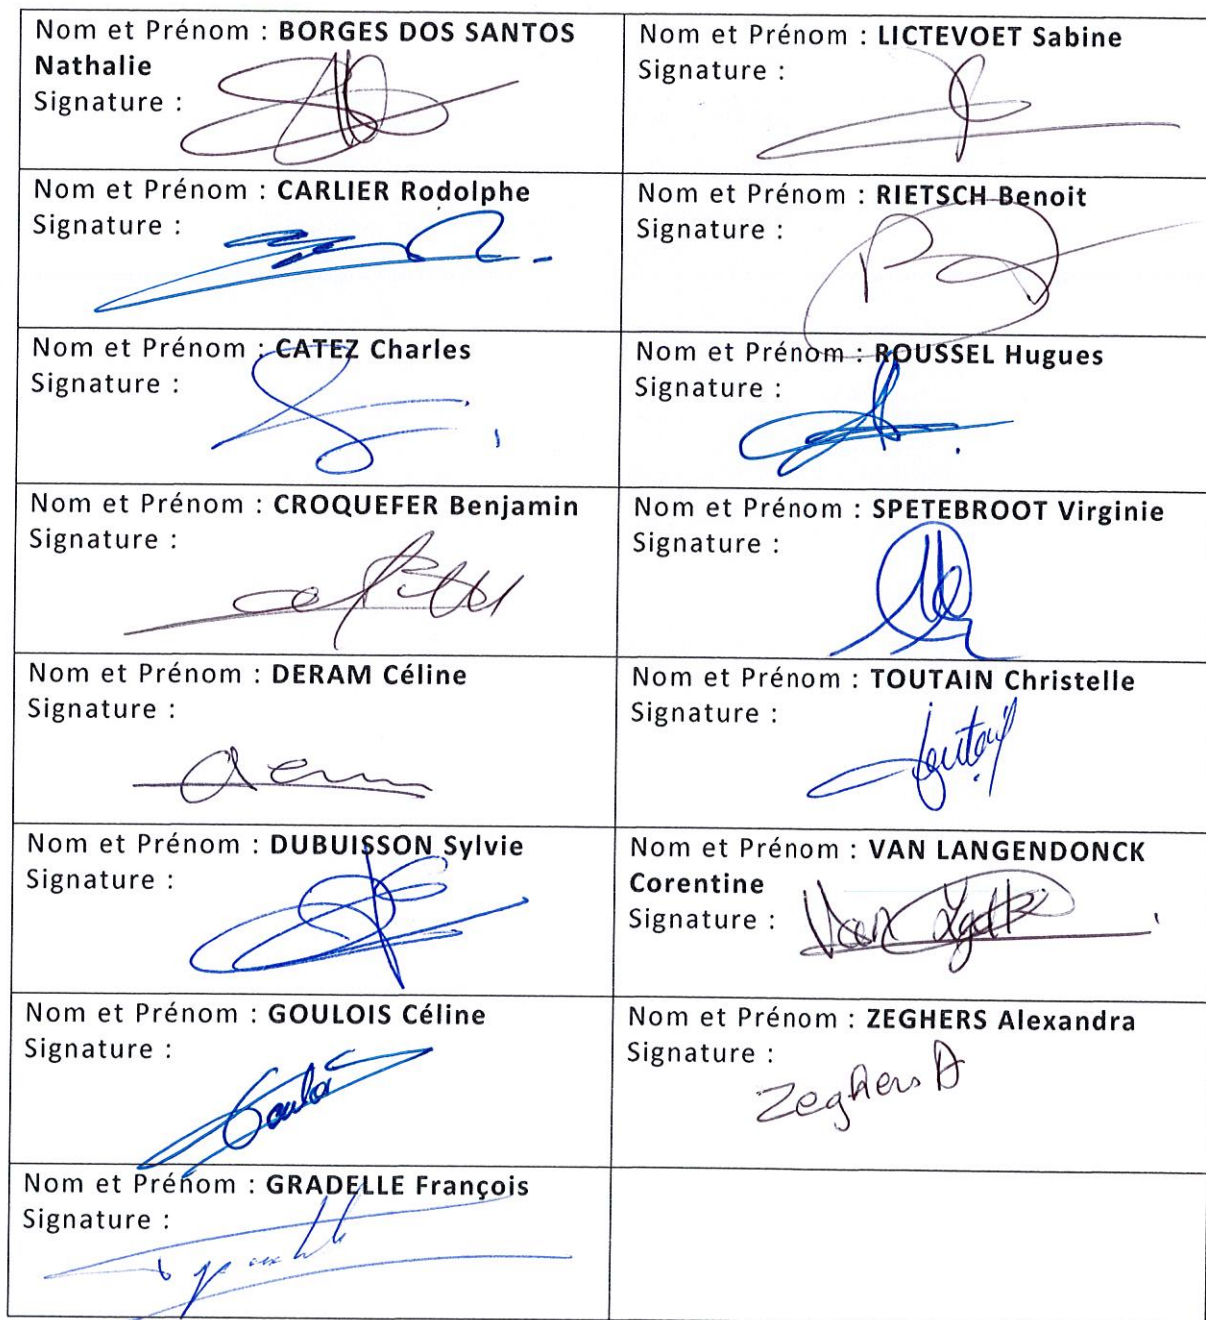 Nom et Prénom : BORGES DOS SANTOS
Nathalie
Signature :
Nom et Prénom : LICTEVOET Sabine
Signature :
Nom et Prénom : CARLIER Rodolphe
Signature :
Nom et Prénom : RIETSCH Benoit
Signature :
Nom et Prénom : CATEZ Charles
Signature :
Nom et Prénom : ROUSSEL Hugues
Signature :
Nom et Prénom : CROQUEFER Benjamin
Signature :
Nom et Prénom : SPETEBROOT Virginie
Signature :
Nom et Prénom : DERAM Céline
Signature :
Nom et Prénom : TOUTAIN Christelle
Signature :
Nom et Prénom : DUBUISSON Sylvie
Signature :
Nom et Prénom : VAN LANGENDONCK
Corentine
Signature :
Nom et Prénom : GOULOIS Céline
Signature :
Nom et Prénom : ZEGHERS Alexandra
Signature :
Zeghers A
Nom et Prénom : GRADELLE François
Signature :